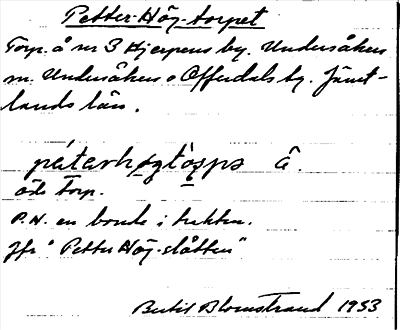 Petter-Hög-torpet
Torp. å nr 3 Hjerpens by. Undersåkers
sn. Undersåkers o Offerdals tg. Jämt-
lands län.
pètarhøgtòṣpə â.
öde torp.
P.H. en bonde i trakten.
Jfr "Petter Hög-slåtten"
Bertil Blomstrand 1933